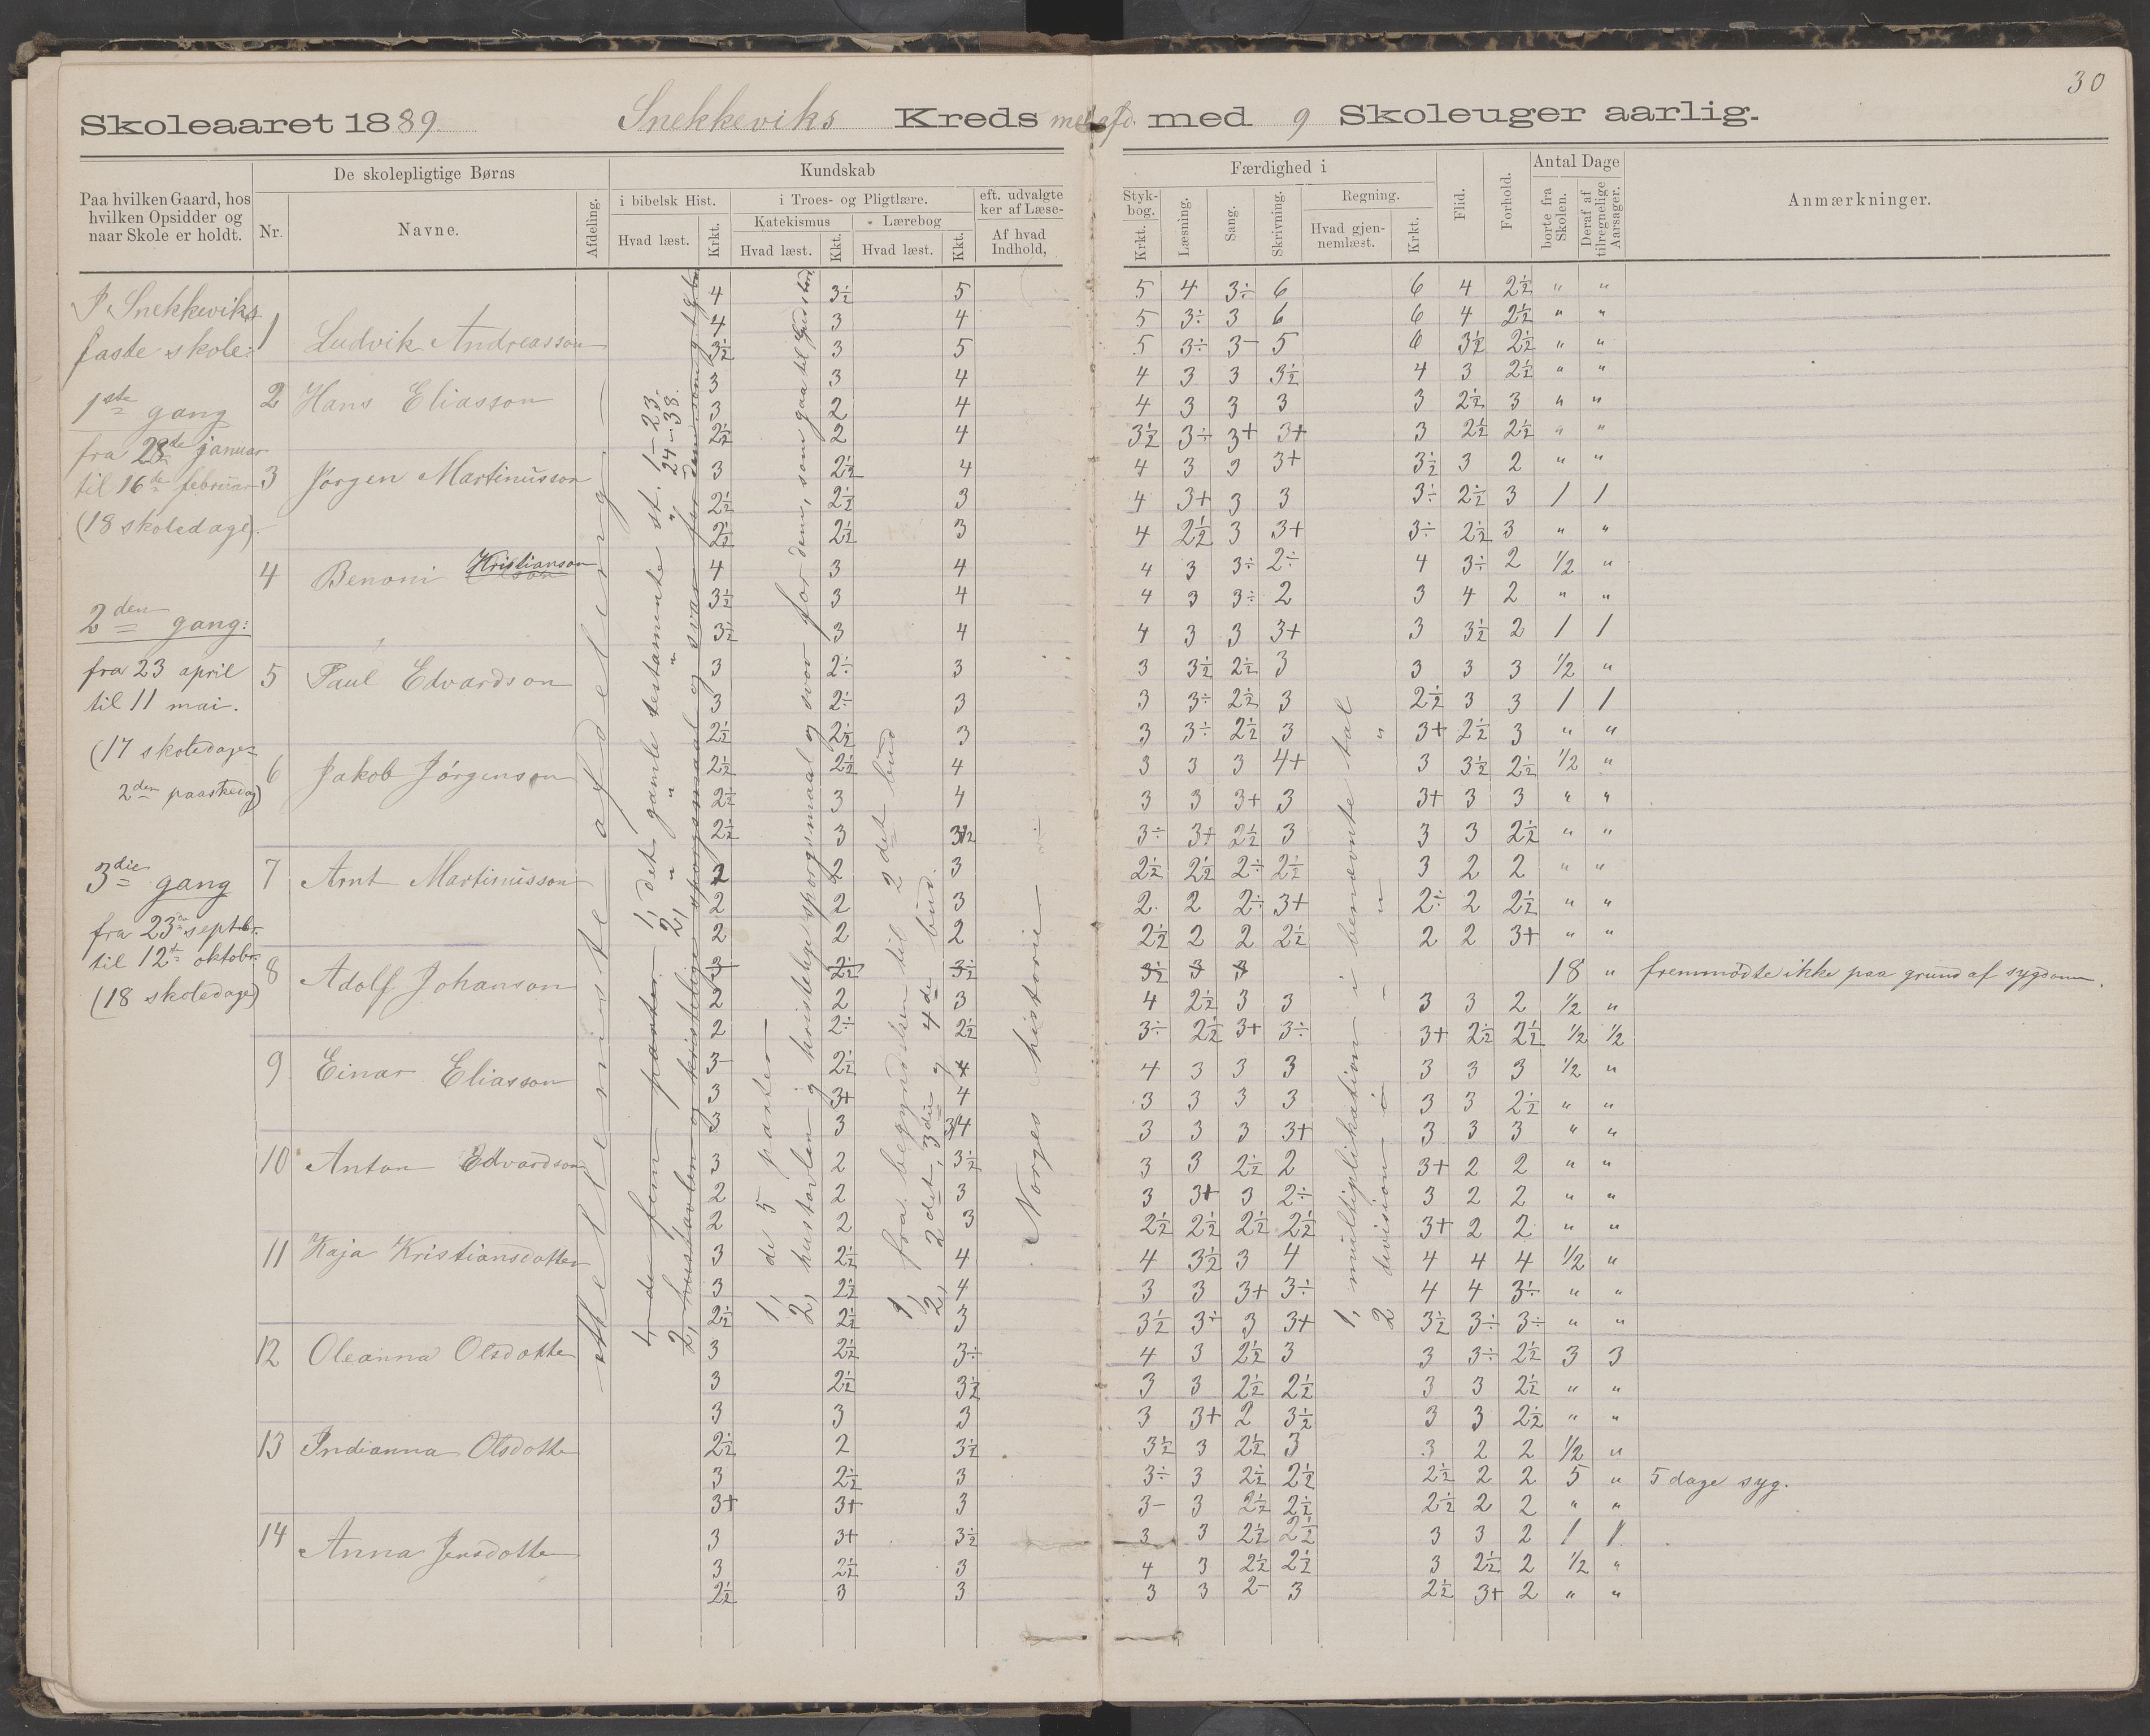 30
Skoleaaret 1889. Snekkeviks Kreds med 9 Skoleuger aarlig.
Paa hvilken Gaard, hos hvilken Opsidder og naar Skole er holdt.
De skolepligtige Børns
Nr. Navne.
Afdeling.
Kundskab
i bibelsk Hist. i Troes- og Pligtlære. eft. udvalgte
ker af Læse-
Katekismus Lærebog
Hvad læst. Krkt. Hvad læst. Kkt. Hvad læst. Kkt. Af hvad Indhold,
Færdighed i
Styk-bog. Krkt. Læsning. Sang. Skrivning. Regning.
Hvad gjen-nemlæst. Krkt.
Flid. Forhold.
Antal Dage
borte fra Skolen. Deraf af tilregnelige Aarsager.
Anmærkninger.
I Snekkeviks
faste skole:
1ste gang
fra 28de januar
til 16de februar
(18 skoledage).
2den gang:
fra 23 april
til 11 mai.
(17 skoledage
2den paaskedag)
3die gang
fra 23de septbr.
til 12te oktobr.
(18 skoledage)
1 Ludvik Andreasson
2 Hans Eliasson
3 Jørgen Martinusson
4 Benoni Kristianson
5 Paul Edvardson
6 Jakob Jørgenson
7 Arnt Martinusson
8 Adolf Johanson
9 Einar Eliasson
10 Anton Edvardson
11 Kaja Kristiansdotter
12 Oleanna Olsdotte
13 Indianna Olsdotte
14 Anna Jensdotte
afdelening
1, det gamle testamente st. 1–23.
2, " " " " 24–38.
1, de fem parter
2, hustavlen og kristelige spørgsmaal og svar for dem som
1, de 5 parter
2, hustavlen og kristelige spørgsmaal og svar for dem, som gaa til
1, fra begyndelsen til 2det bud
2, 2det, 3die og 4de bud.
Norges historie
1, multiplikation i benævnte tal
2 division i – " "
4 3½ 5 5 4 3÷ 6 6 4 2½ " "
4 3 4 5 3÷ 3 6 6 4 2½ " "
3½ 3 5 5 3÷ 3– 5 6 3½ 2½ " "
3 3 4 4 3 3 3½ 4 3 2½ " "
3 2 4 4 3 3 3 3 2½ 3 " "
2½ 2 4 3½ 3÷ 3+ 3+ 3 2½ 2½ " "
3 2½ 4 4 3 3 3+ 3½ 3 2 " "
2½ 2½ 3 4 3+ 3 3 3÷ 2½ 3 1 1
2½ 2½ 3 4 2½ 3 3+ 3÷ 2½ 3 " "
4 3 4 4 3 3÷ 2÷ 4 3÷ 2 ½ "
3½ 3 4 4 3 3÷ 2 3 4 2 " "
3½ 3 4 4 3 3 3+ 3 3½ 2 1 1
3 2÷ 3 3 3½ 2½ 3 3 3 3 ½ "
3 2÷ 3 3 3÷ 2½ 3 2½ 3 3 1 1
2½ 2½ 3 3 3÷ 2½ 3 3+ 2½ 3 " "
2½ 2½ 4 3 3 3 4+ 3 3½ 2½ ½ "
2½ 3 4 3 3 3+ 3 3+ 3 3 " "
2½ 3 3½ 3÷ 3+ 2½ 3 3 3 2½ " "
2 2 3 2½ 2½ 2÷ 2½ 3 2 2 " "
2 2 3 2 2 2÷ 3+ 2÷ 2 2½ " "
2 2 2 2½ 2 2 2½ 2 2 3+ " "
3 2½ 3½ 3½ 3 3 18 " fremmødte ikke paa grund af sygdom.
2 2 3 4 2½ 3 3 3 3 2 ½ "
2 2÷ 2½ 3÷ 2½ 3+ 3÷ 3+ 2½ 2½ ½ ½
3 2½ 4 4 3 3 3 3 3 3 ½ "
3 3+ 4 3 3 3 3 3 3 2½ " "
3 3 4 3 3 3 3+ 3 3 3 " "
3 2 3½ 3 3 2½ 2 3+ 2 2 " "
2 2 3 3 3+ 3 2÷ 3 2 2 " "
2 2 3 2½ 2½ 2½ 2½ 3+ 2 2 " "
3 2½ 4 4 3½ 3 4 4 4 4 ½ "
3 2½ 4 3 3 3+ 3÷ 4 4 3÷ " "
2½ 2½ 3 3½ 3÷ 3 3+ 3½ 3÷ 3÷ " "
3 2½ 3÷ 4 3 2½ 3 3 3÷ 2½ 3 3
3 2½ 3½ 3 3 2½ 2½ 3 3 2½ " "
3 3 3 3 3+ 2 3½ 3 3 2½ " "
2½ 2 3½ 3½ 3 2½ 3 3 2 2 ½ "
3 2½ 3 3÷ 3 2½ 2½ 2½ 2 2 5 " 5 dage syg.
3+ 3+ 3 3– 3 2½ 2½ 2½ 2 2 " "
3 3+ 3½ 3 3 2½ 2½ 3 3 2 1 1
3 2½ 3 4 3 2½ 2½ 3 2½ 2 ½ "
2½ 3 3 3 3 2– 3 2½ 3+ 2 " "